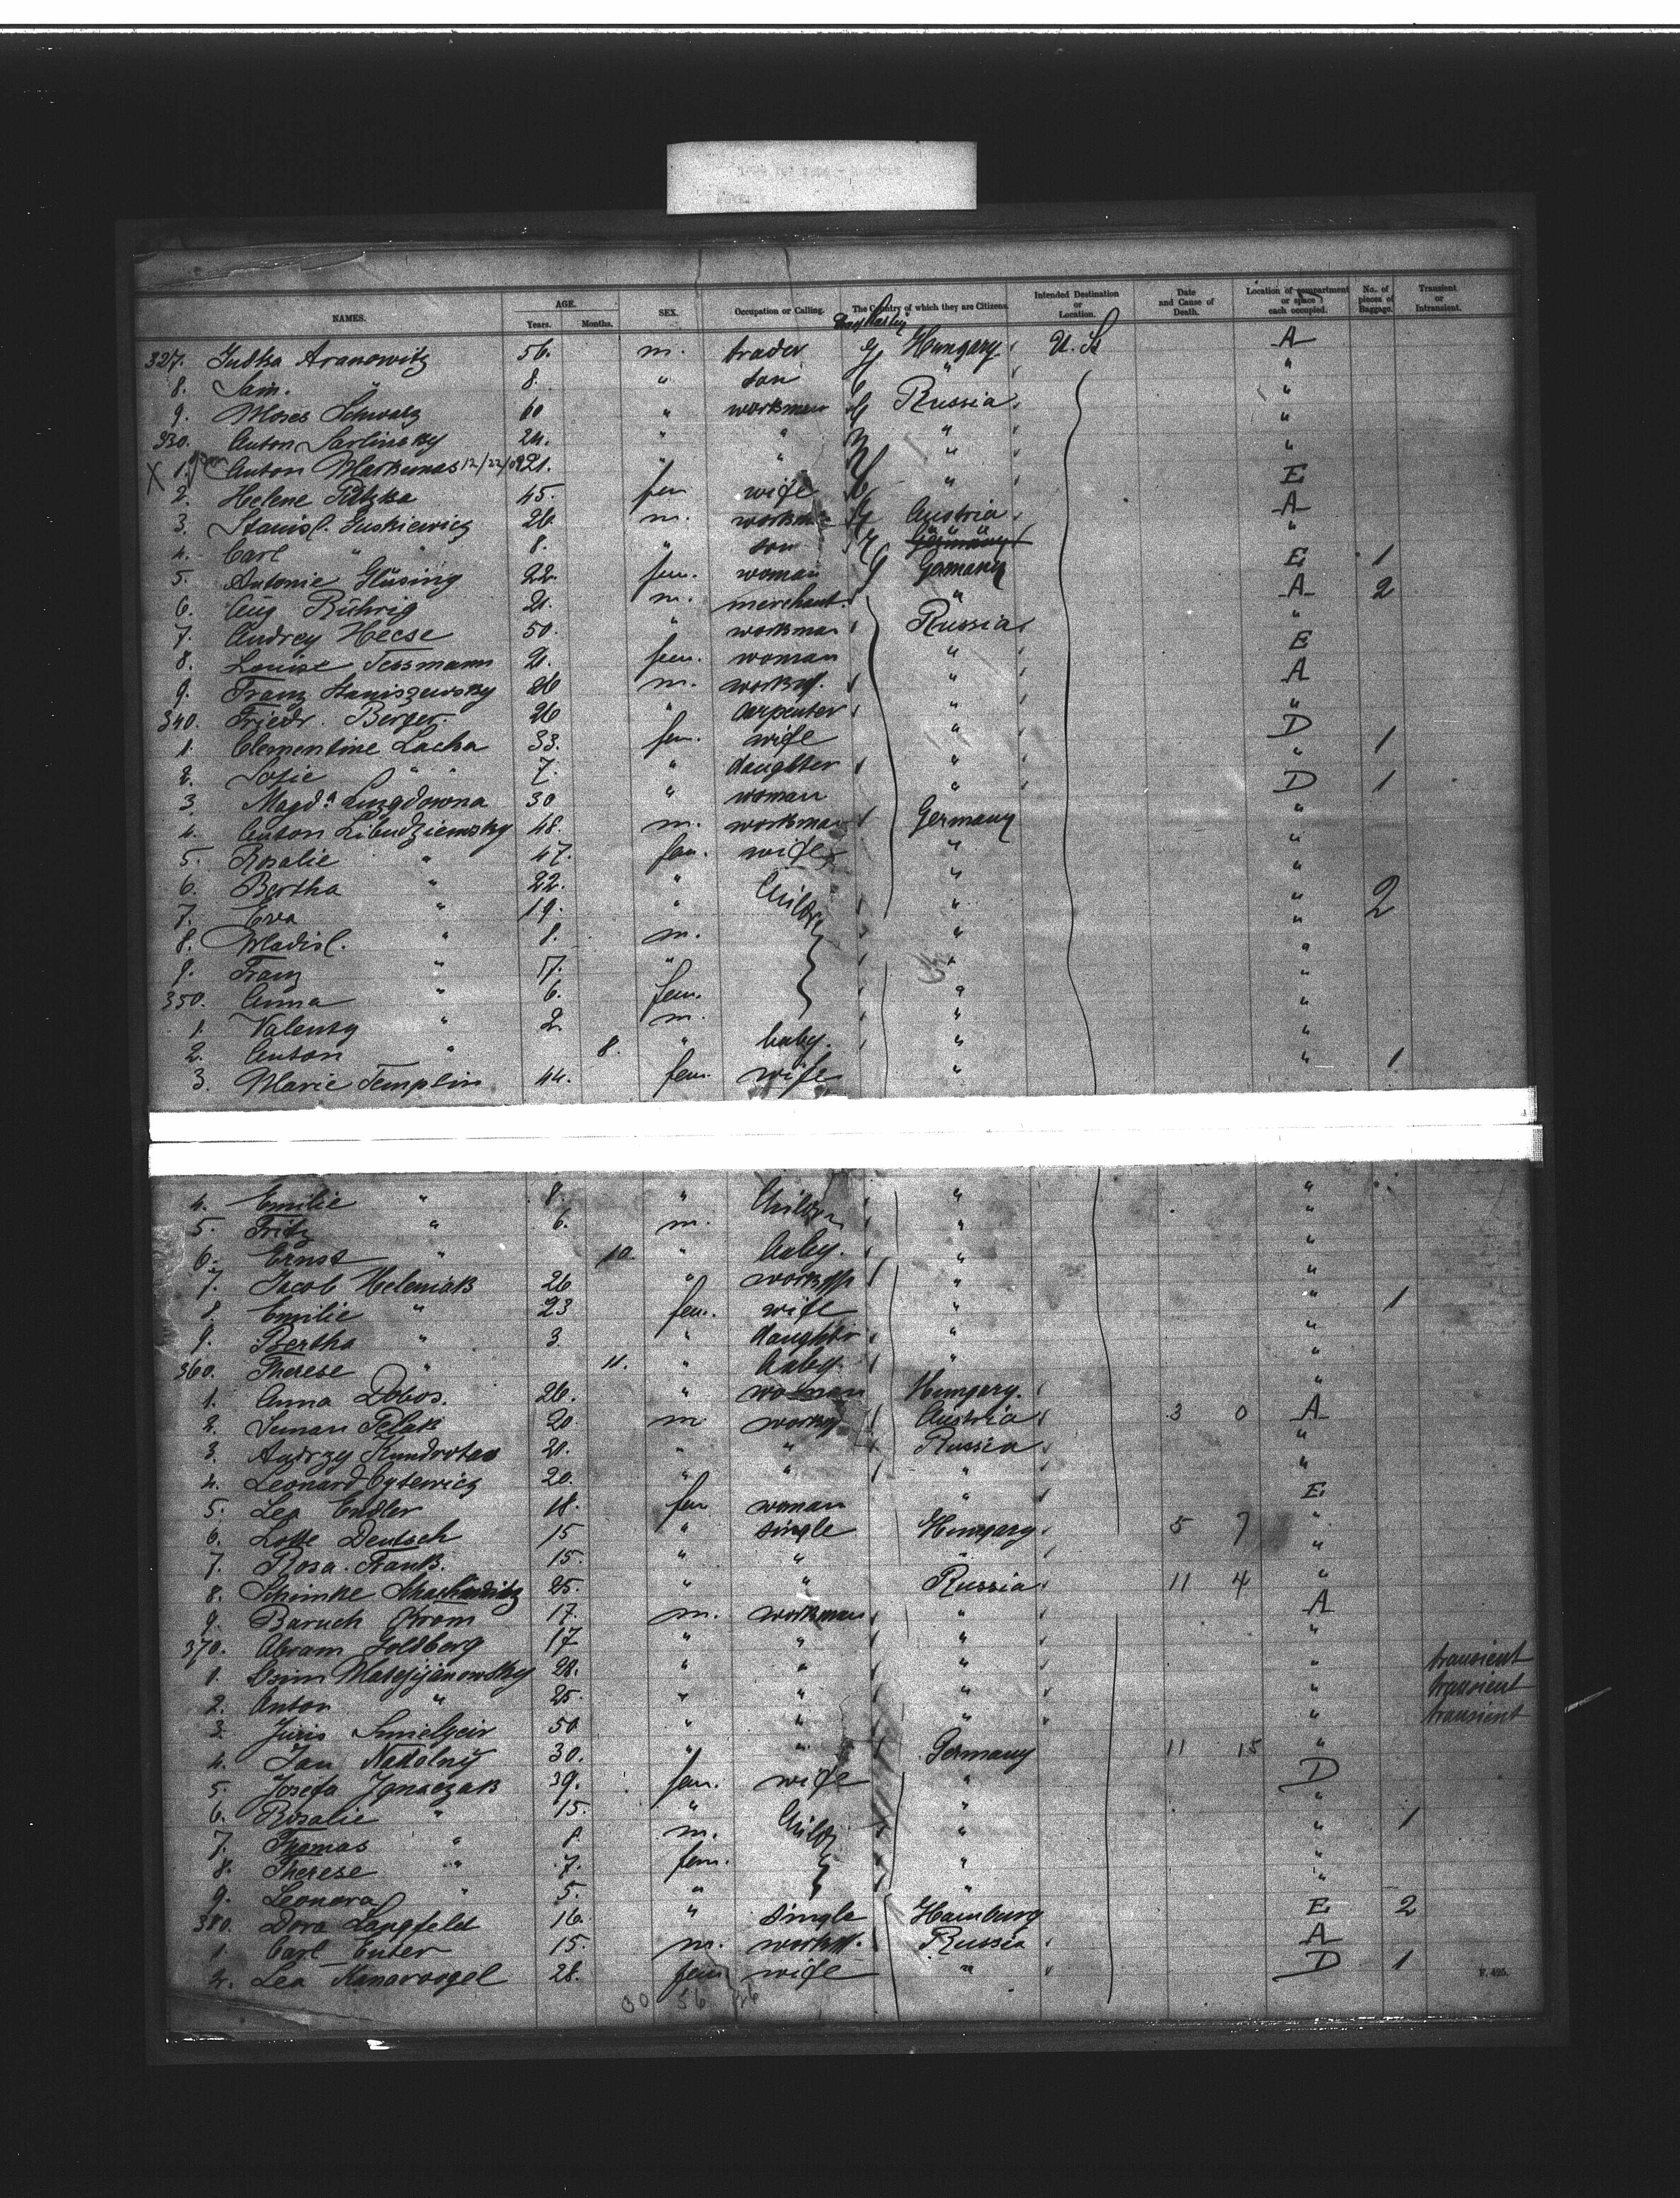 NAMES. AGE. Years. Months. SEX. Occupation or Calling. The Country of which they are Citizens. Intended Destination or Location. Date and Cause of Death. Location of compartment or space each occupied. No. of pieces of Baggage. Transient or Intransient.
327. Judka Aranowitz 56. m. trader Hungary U. St A
8. Sam. " 8. " son " "
9. Moses Schwarz 60 " workman Russia "
330. Anton Sarlinsky 24. " " " "
X 1. Anton Markunas 12/22/09 21. " " " "
2. Helene Putzka 45. fem wife " E
3. Stanisl. Juskiewicz 26. m. workm Austria A
4. Carl " " 8. " son " "
5. Antonie Glüsing 22. fem. woman Germany E 1
6. Aug Bührig 21. m. merchant " A 2
7. Andrey Heese 50. " workman Russia "
8. Louise Tessmann 21. fem. woman " E
9. Franz Staniszewsky 26 m. workm. " A
340. Friedr. Berger. 26 " carpenter " "
1. Clementine Lacha 33. fem. wife " D 1
2. Sofie " " 7. " daughter " "
3. Magd.a 30 " woman " D 1
4. Anton Libudziemsky 48. m. workman Germany "
5. Rosalie " 47. fem. wife " "
6. Bertha " 22. " Childr " "
7. Eva " 19. " " " 2
8. Wladisl. " 8. m. " "
9. Franz " 17. " " "
350. Anna " 6. fem. " "
1. Valenty " 2. m. " "
2. Anton " 8. " baby. " "
3. Marie Templin 44. fem. wife " " 1
4. Emilie " 8. " Children " "
5. Fritz " 6. m. " "
6. Ernst " 10. " baby. " "
7. Jacob Heleniak 26 " workm " "
8. Emilie " 23 fem. wife " " 1
9. Bertha " 3. " daughtr " "
360. Therese " 11. " baby. " "
1. Anna Dobos. 26. " woman Hungary. "
2. Polak 20 m workm Austria 3 0 A
3. Andrzy Kundrotas 21. " " Russia "
4. Leonard Cytewicz 20. " " " "
5. Lea Endler 18. fem woman " E.
6. Lotte Deutsch 15 " single Hungary 5 7 "
7. Rosa. Frank. 15. " " " "
8. 25. " " Russia 11 4 "
9. Baruch Krom 17. m. workman " A
370. Abram Goldberg 17 " " " "
1. Osim Mateyijanowsky 28. " " " " transient
2. Anton " 25. " " " " transient
3. Juris Smelgeir 50 " " " " transient
4. Jan Nadolny 30. " " Germany 11 15 "
5. Josefa Ignaczak 39. fem. wife " D
6. Rosalie " 15. " Childr " " 1
7. Thomas " 8. m. " "
8. Therese " 7. fem. " "
9. Leonora " 5. " " "
380. Dora Langfeld 16. " single Hamburg E 2
1. Carl Enter 15. m. workm. Russia A
2. Lea Kanarvogel 28. fem wife " D 1
30 56 26